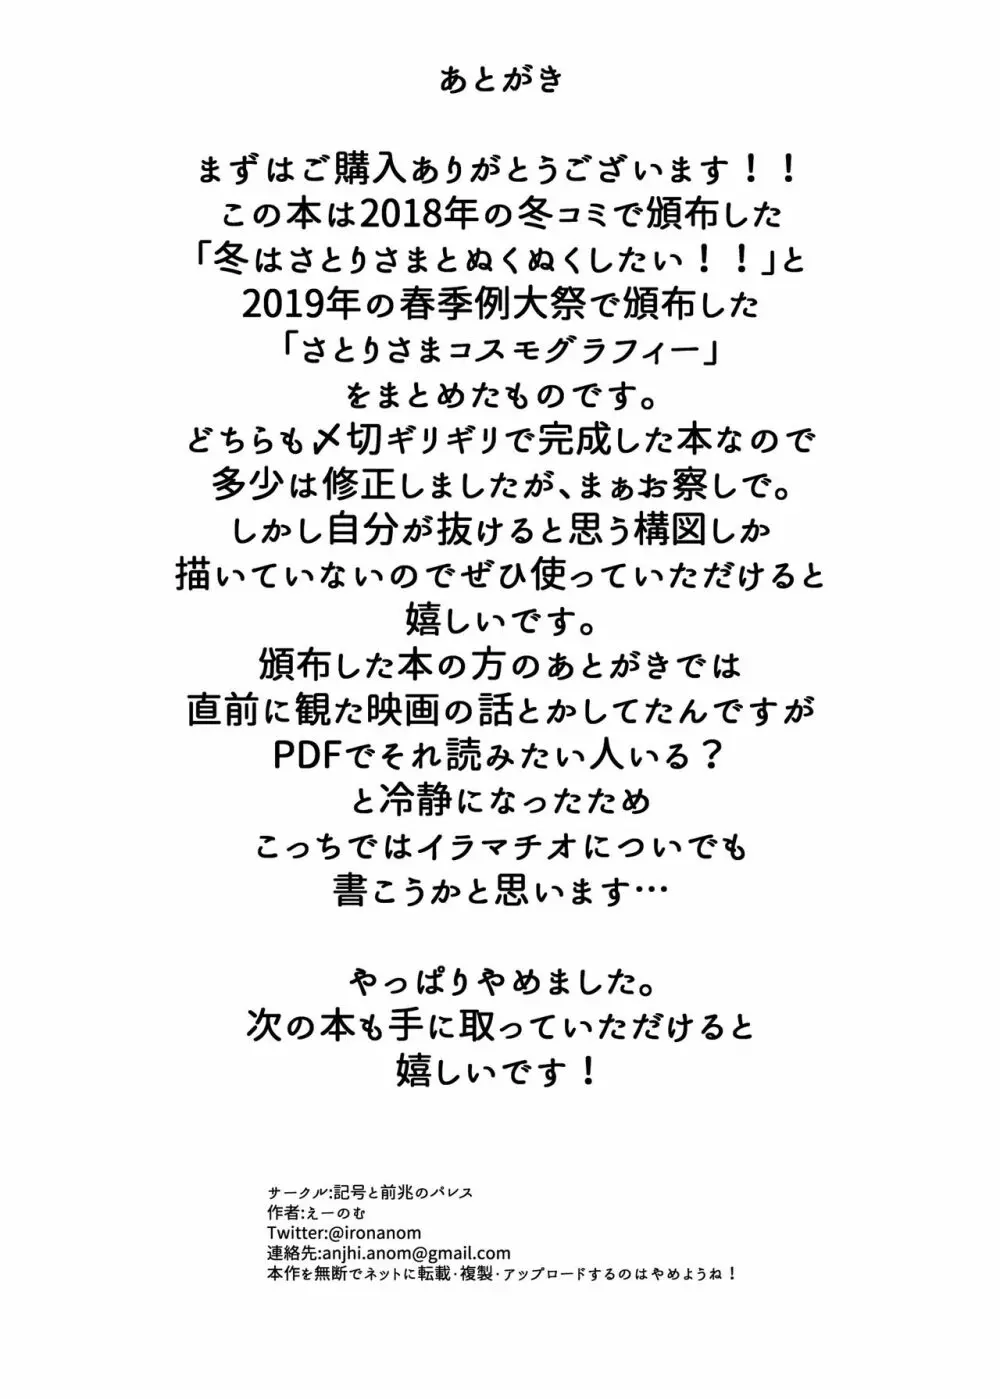 あとがき
まずはご購入ありがとうございます！！
この本は2018年の冬コミで頒布した
「冬はさとりさまとぬくぬくしたい！！」と
2019年の春季例大祭で頒布した
「さとりさまコスモグラフィー」
をまとめたものです。
どちらも〆切ギリギリで完成した本なので
多少は修正しましたが、まぁお察しで。
しかし自分が抜けると思う構図しか
描いていないのでぜひ使っていただけると
嬉しいです。
頒布した本の方のあとがきでは
直前に観た映画の話とかしてたんですが
PDFでそれ読みたい人いる？
と冷静になったため
こっちではイラマチオについでも
書こうかと思います…
やっぱりやめました。
次の本も手に取っていただけると
嬉しいです！
サークル:記号と前兆のパレス
作者:えーのむ
Twitter:@ironanom
連絡先:anjhi.anom@gmail.com
本作を無断でネットに転載·複製·アップロードするのはやめようね！